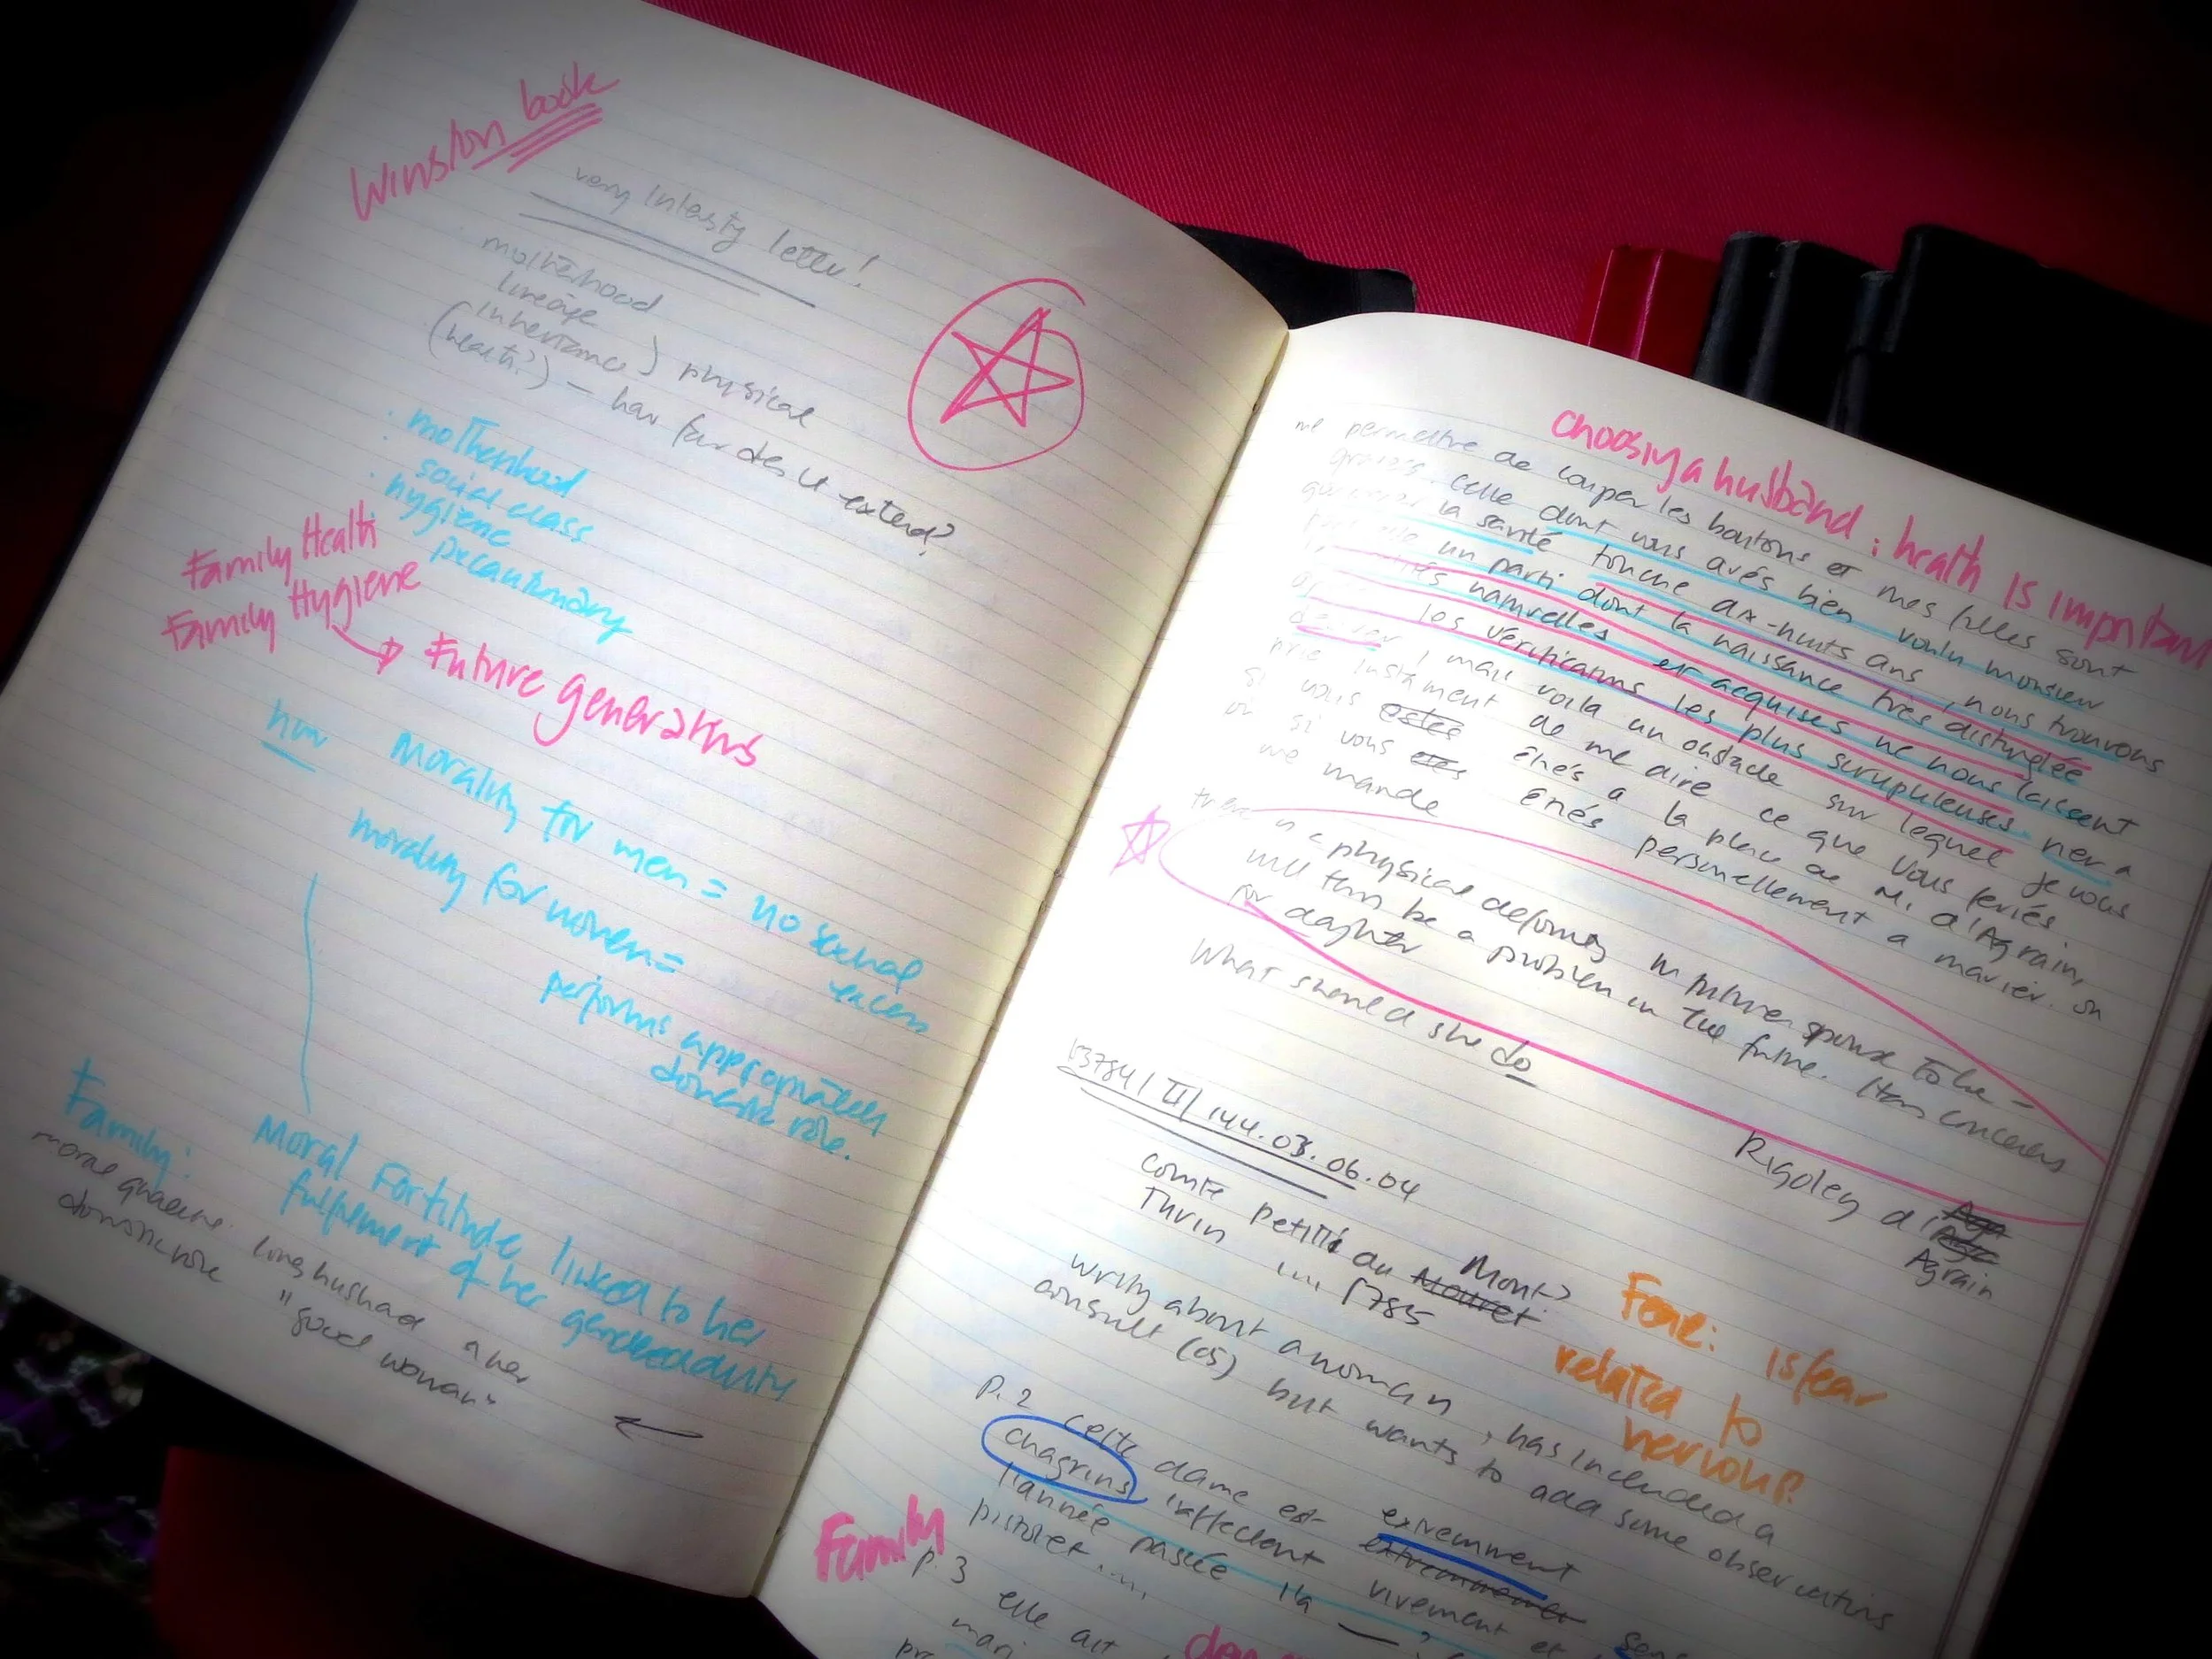 Winston book
very intersty letter!
motherhood
lineage
inheritance) physical
(health?) – how far does it extend?
: motherhood
social class
. hygiene
Family Health
Family Hygiene
Future generations
Morality for men = no sexual
excess
morality for women =
performs appropriately
domestic role.
Moral Fortitude linked to her
fulfilment of her gendered duty
Family:
domestic role
"good woman"
choosing a husband : health is important
me permettre de couper les boutons et mes filles sont
celle dont vous avés bien voulu monsieur
la santé touche dix-huits ans, nous trouvons
un parti dont la naissance très distinglée
naturelles et acquises ne nous laissent
les vérifications les plus scrupuleuses rien a
mais voila un obstacle sur lequel je vous
prie instament de me dire ce que vous feriés
si vous estes étiés a la place de M. d'Agrain,
où si vous etes étiés personellement a marier. on
me mande
physical deformity in future spouse to be –
will this be a problem in the future. Has concerns
for daghter
What should she do
Rigoley d'
Agrain
03784/II/144.03.06.04
comte Petitti du Mouret Mont>
Turin .... 1785
writing about a woman, has included a
consult (05) but wants to add some observations
Fear: is fear
related to
nervous?
p. 2 cette dame est extremment
chagrins l'affectent vivement et
l'année passée il a
pistolet ....
Family
p. 3 elle ait
mari